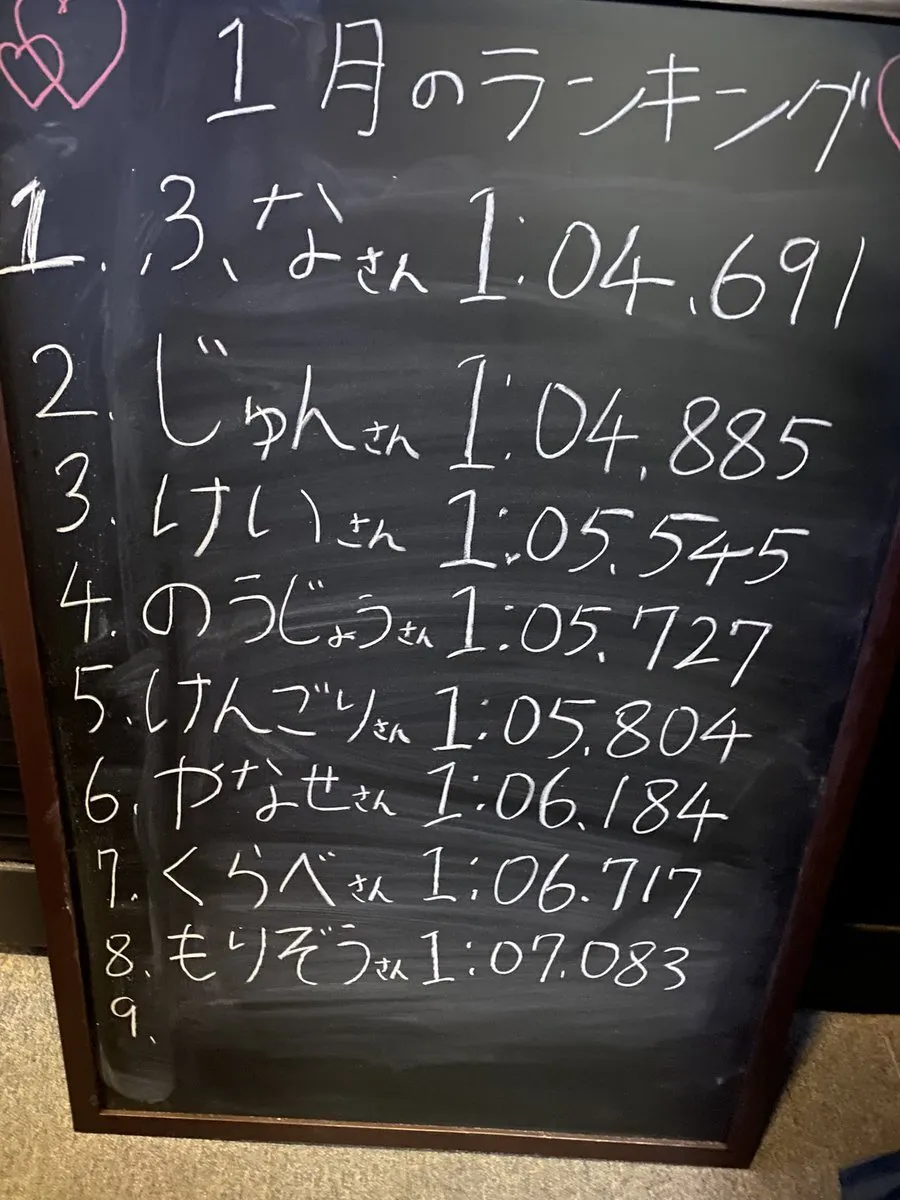 1月のランキング
1. ふなさん 1:04.691
2. じゅんさん 1:04.885
3. けいさん 1:05.545
4. のうじょうさん 1:05.727
5. けんごりさん 1:05.804
6. やなせさん 1:06.184
7. くらべさん 1:06.717
8. もりぞうさん 1:07.083
9.